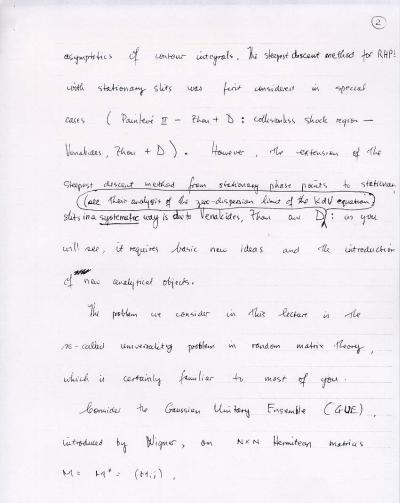 2
asymptotics of contour integrals. The steepest descent method for RHP's
with stationary slits was first considered in special
cases ( Painlevé II - Zhou + D : collisionless shock region —
Venakides, Zhou + D ). However, the extension of the
steepest descent method from stationary phase points to stationary
(see their analysis of the zero-dispersion limit of the KdV equation)
slits in a systematic way is due to Venakides, Zhou and D : as you
will see, it requires basic new ideas and the introduction
of new analytical objects.
The problem we consider in this lecture is the
so-called universality problem in random matrix theory,
which is certainly familiar to most of you.
Consider the Gaussian Unitary Ensemble (GUE),
introduced by Wigner, on N×N Hermitean matrices
M = M* = (Mij).